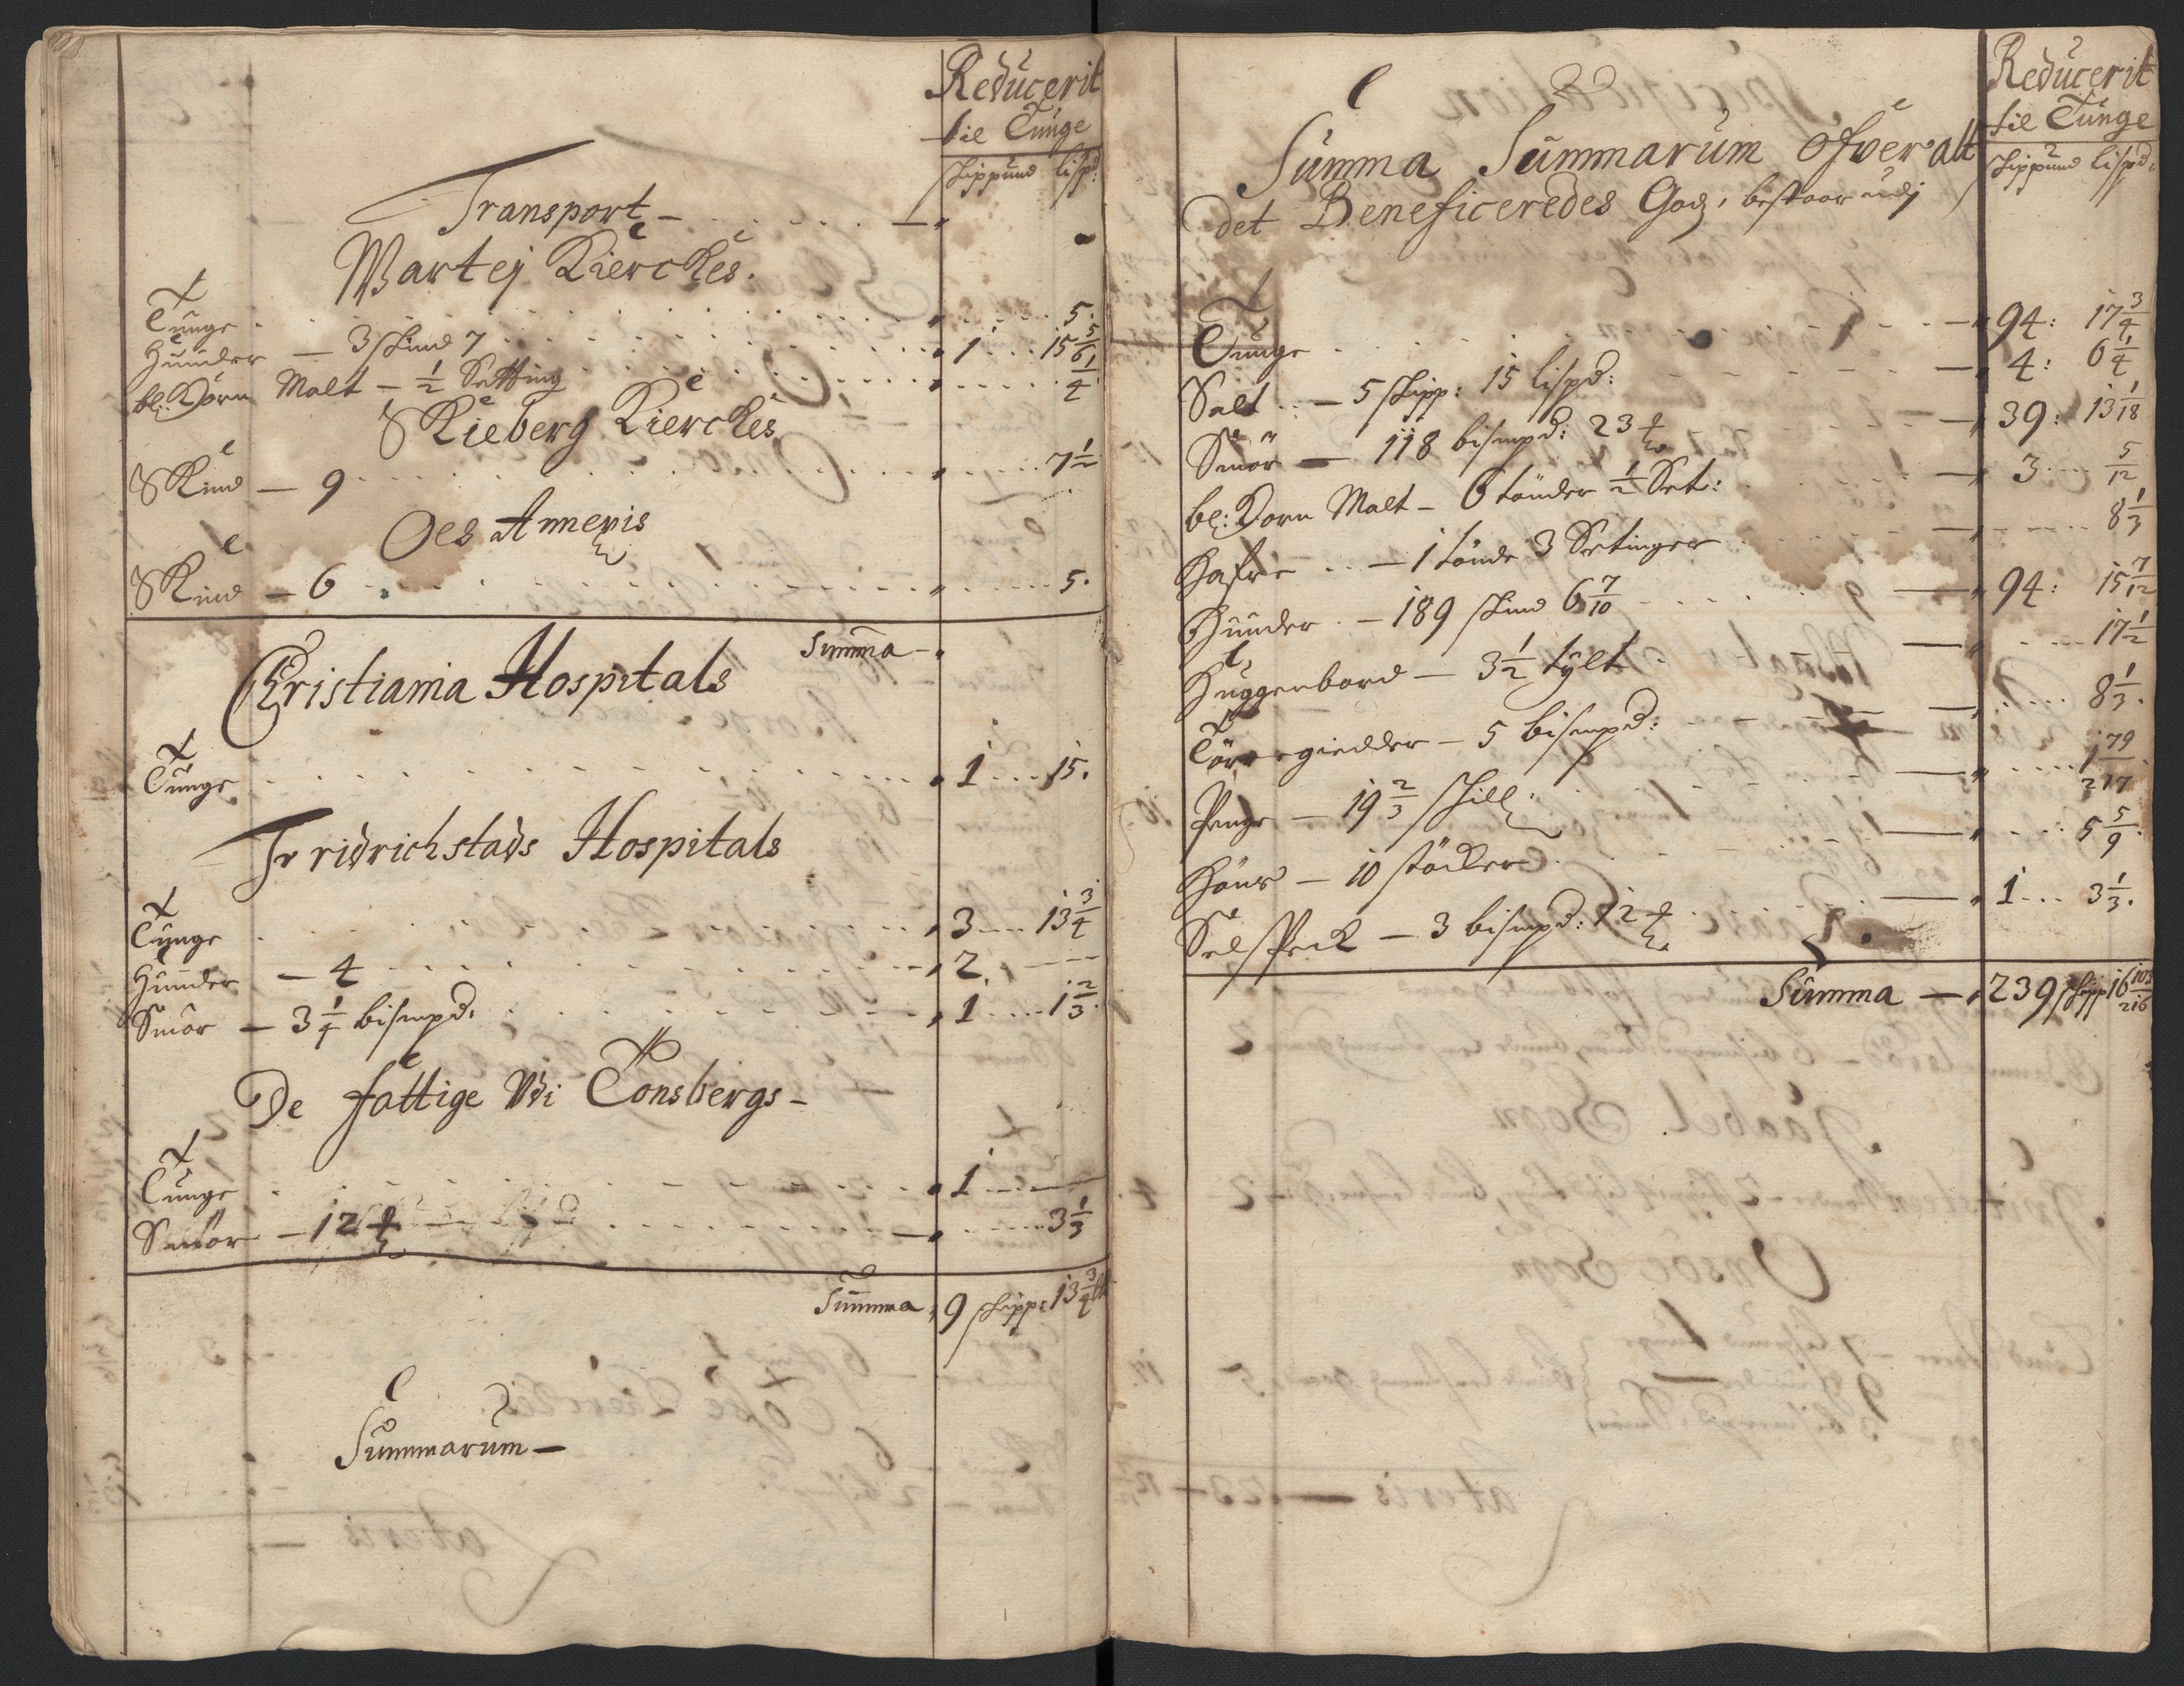 Reducerit
til Tunge
skippund lispd:
Transport —
Wartej Kierckes.
Tunge . . . 5.
Hunder — 3 skind 7 . . . 1 . . . 15 5/6
bl: Korn Malt — 1/2 Setting . . . 1/4
Skieberg Kierckes
Skind — 9 . . . 7 1/2
Oes Annexis
Skind — 6 . . . 5.
Summa —
Christiania Hospitals
Tunge . . . 1 . . . 15.
Fridrichstads Hospitals
Tunge . . . 3 . . . 13 3/4
Hunder — 4 . . . 2. —
Smör — 3 1/4 bismpd: . . . 1 . . . 1 2/3
De fattige Udi Tonsbergs —
Tunge . . . 1 . . . —
Smör — 12 ℔ . . . 3 1/3
Summa 9 skipp: 13 3/4 ℔
Summarum —
Reducerit
til Tunge
skippund lispd:
Summa Summarum Ofver alt
det Beneficeredes Godz, bestaar udj
Tunge . . . 94: 17 3/4
Salt . . — 5 skipp: 15 lispd: — 4: 6 1/4
Smör — 118 bismpd: 23 ℔ — 39: 13 1/18
bl: Korn Malt — 6 tönder 1/2 Set: — 3 . . . 5/12
Hafre . . — 1 tönde 3 Setinger — . . . 8 1/3
Hunder . — 189 skind 6 7/10 — 94: 15 7/12
Huggenbord — 3 1/2 tylt — . . . 17 1/2
Törregiedder — 5 bismpd: — . . . 8 1/3.
Penge — 19 2/3 skill: — . . . 1 79/217
Höns — 10 stöcker — . . . 5 5/9.
Selspeck — 3 bismpd: 12 ℔ — 1 . . . 3 1/3.
Summa — 239 skipp 16 103/216